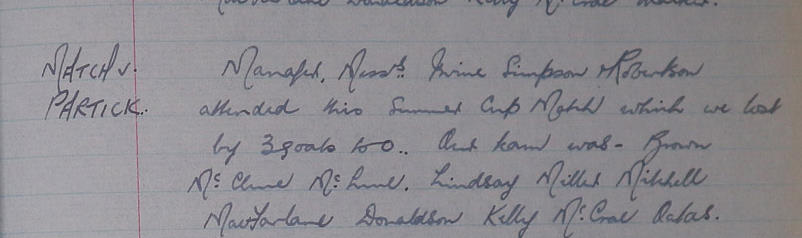 MacFarlane Donaldson Kelly McCrae
MATCH v. Manager, Messrs. Irvine Simpson & Robertson
PARTICK. attended this Summer Cup Match which we lost
by 3 goals to 0.. Our team was - Brown
McClure McLure. Lindsay Miller Mitchell
MacFarlane Donaldson Kelly McCrae